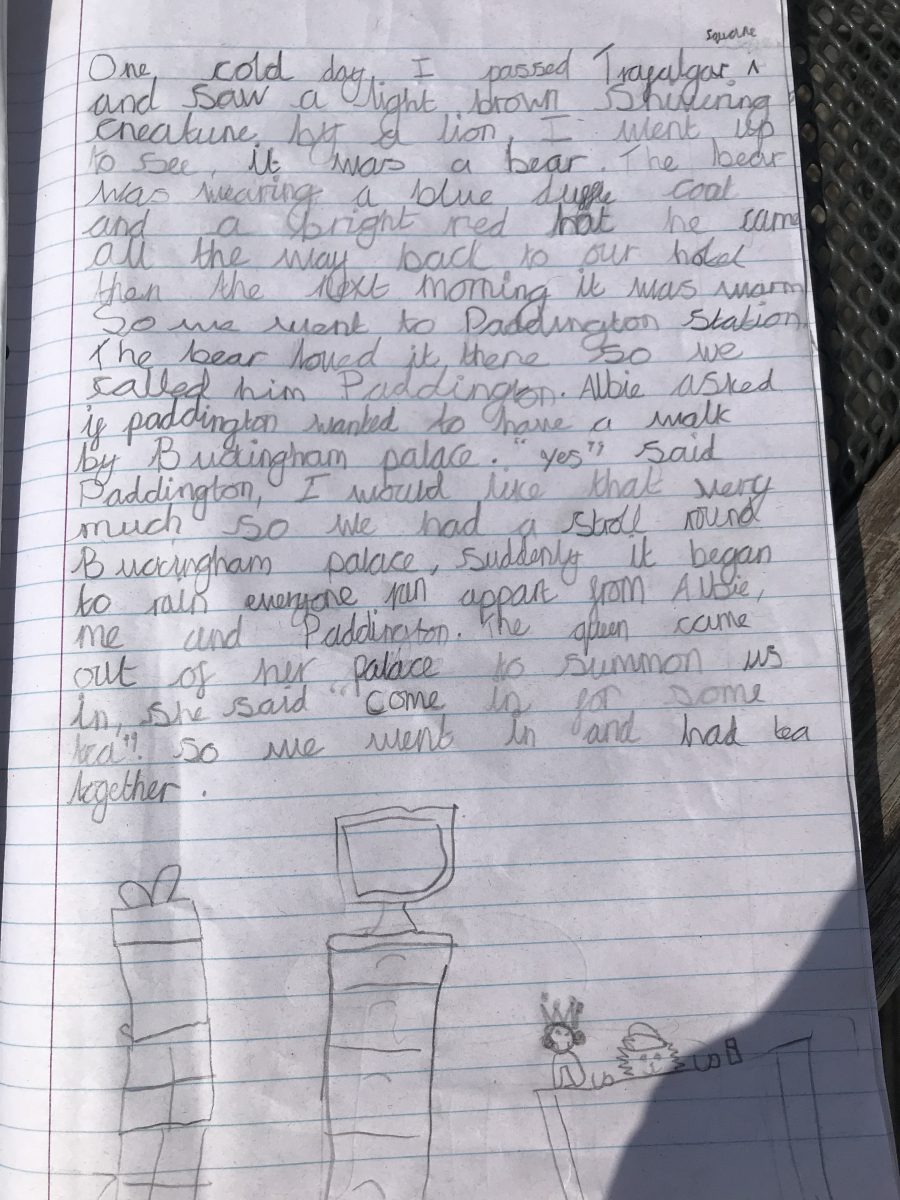 square
One cold day, I passed Trafalgar ^
and saw a light brown shivering
creature by a lion, I went up
to see, it was a bear. The bear
was wearing a blue duffle coat
and a bright red hat he came
all the way back to our hotel
then the next morning it was warm
So we went to Paddington Station.
The bear loved it there so we
called him Paddington. Albie asked
if paddington wanted to have a walk
by Buckingham palace. "yes" said
Paddington, I would like that very
much so we had a stroll round
Buckingham palace, suddenly it began
to rain everyone ran appart from Albie,
me and Paddington. The queen came
out of her palace to summon us
in, she said "come in for some
tea". so we went in and had tea
together.